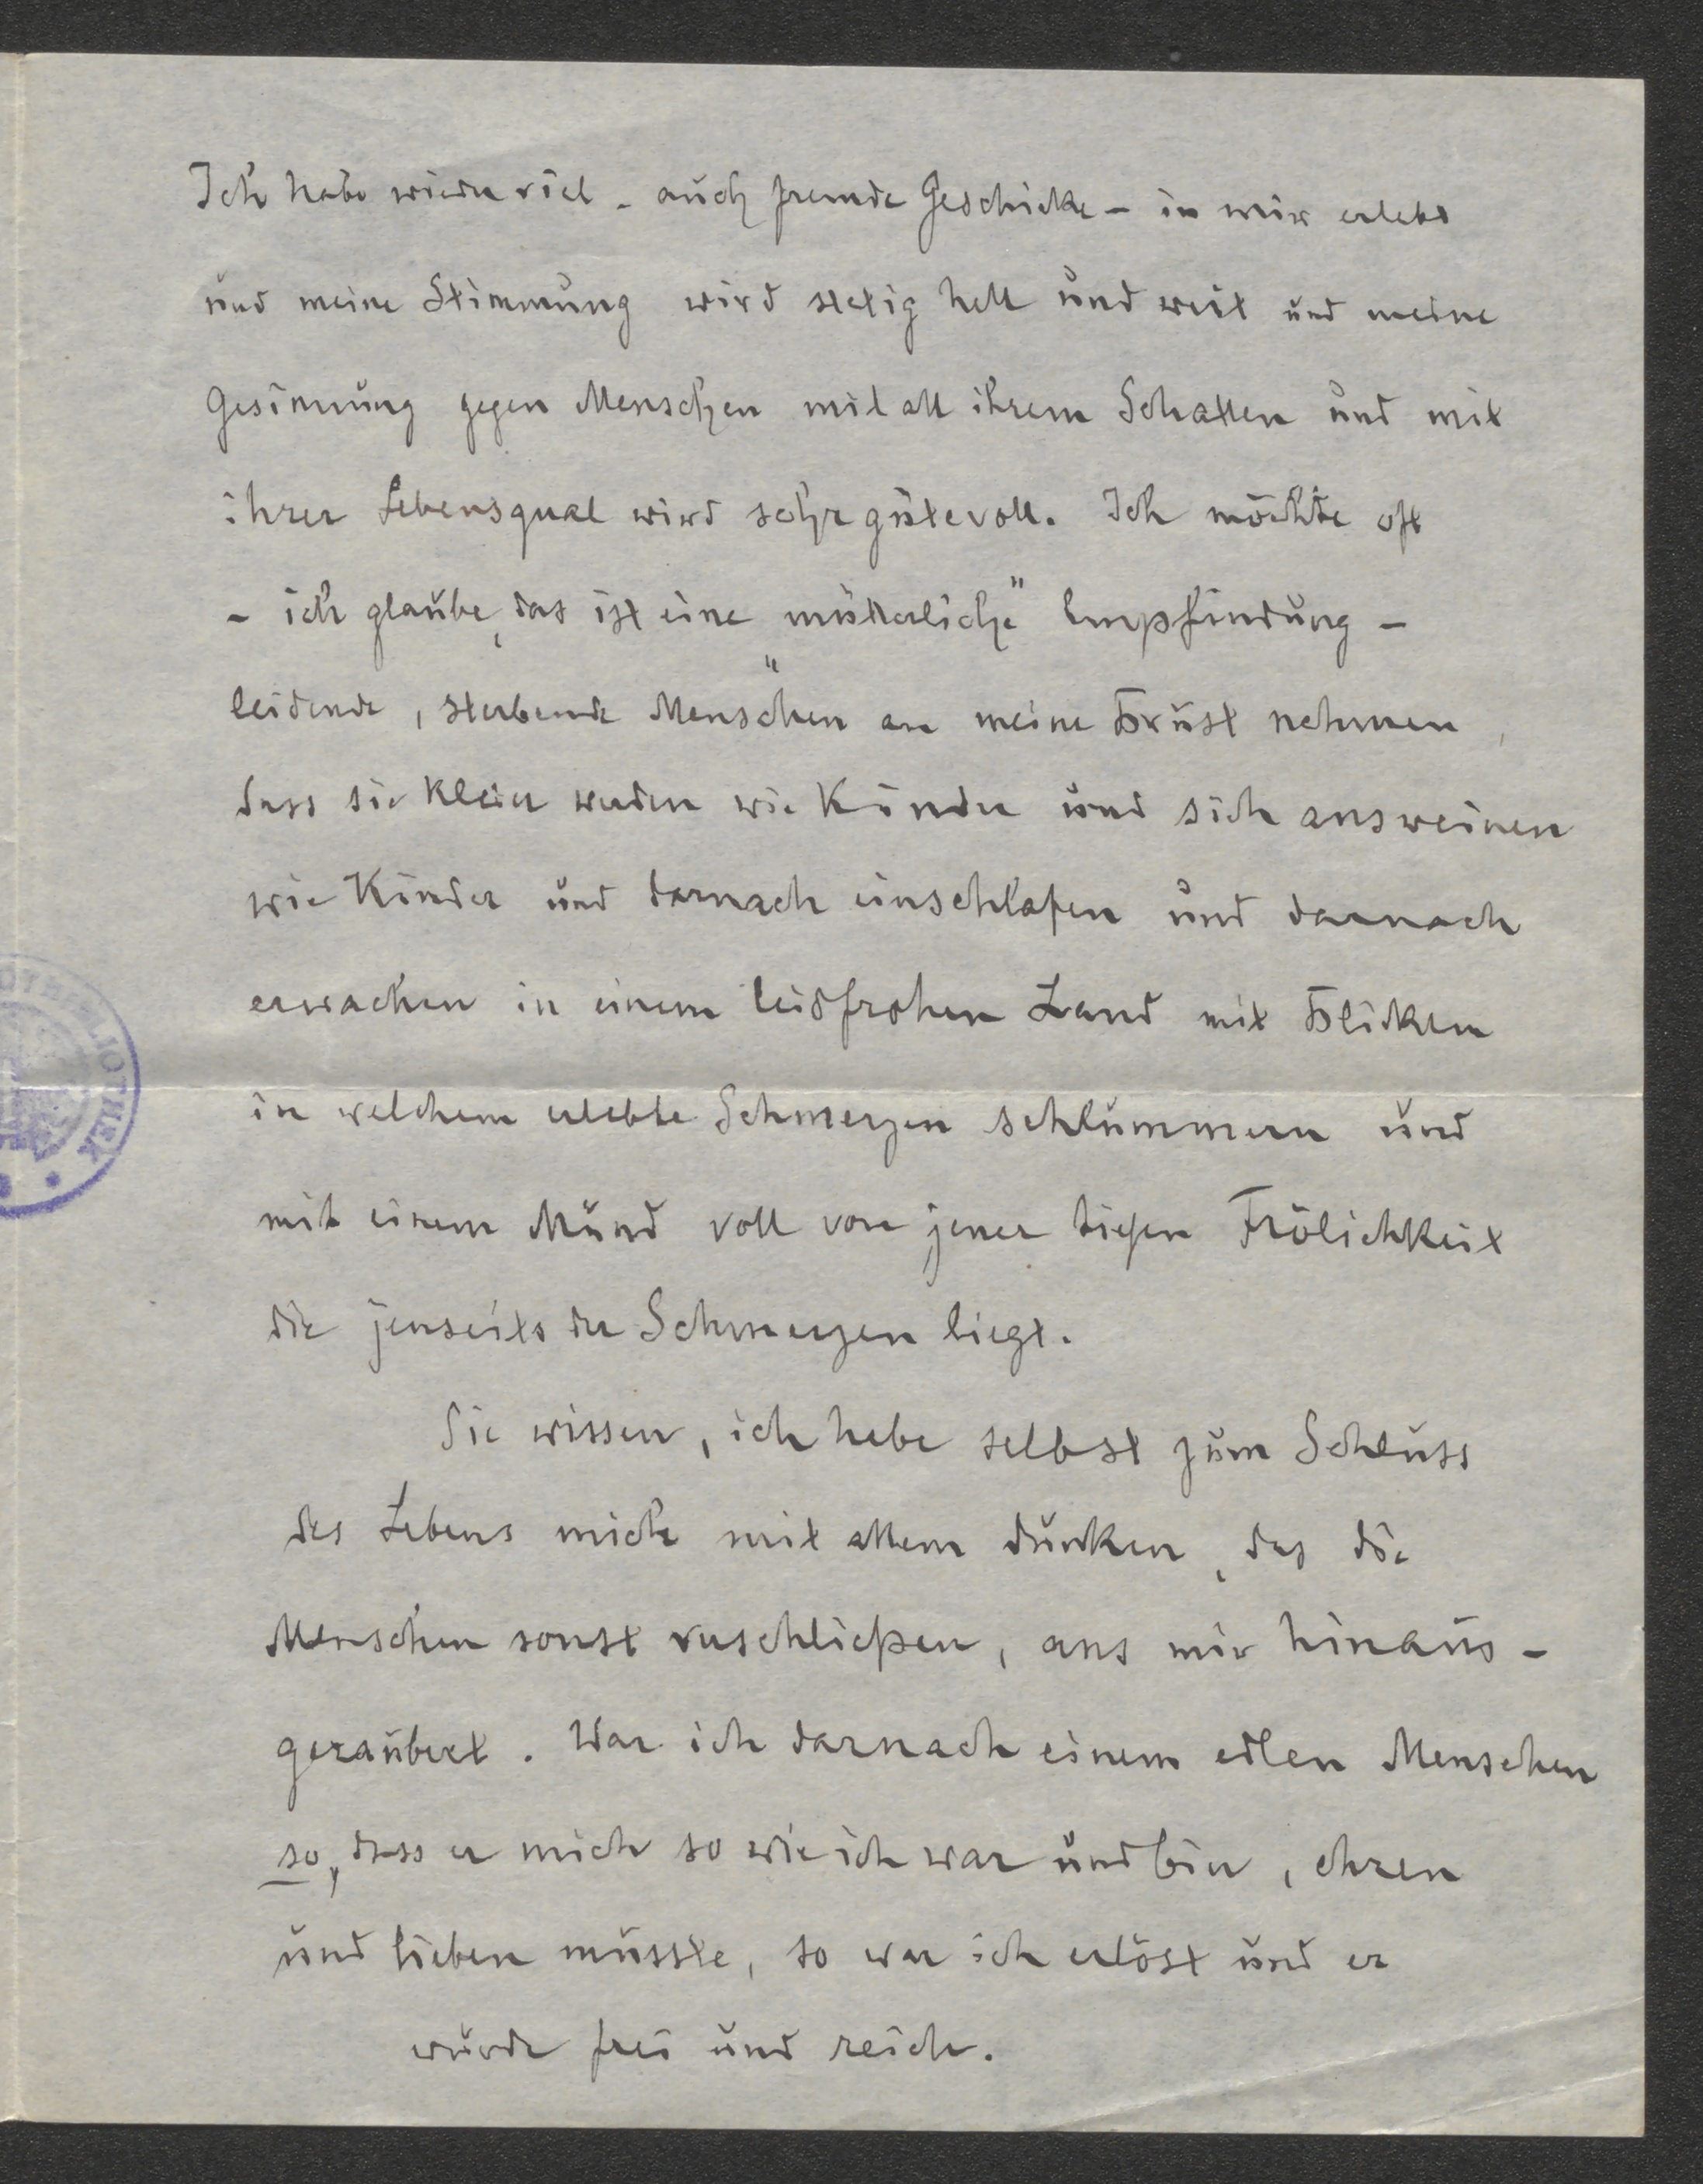 Ich habe wieder viel - auch fremde Geschicke - in mir erlebt
und meine Stimmung wird stetig hell und weit und meine
Gesinnung gegen Menschen mit all ihrem Schatten und mit
ihrer Lebensqual wird sehr gütevoll. Ich möchte oft
- ich glaube, das ist eine "mütterliche" Empfindung -
leidende, sterbende Menschen an meine Brust nehmen,
dass sie klein werden wie Kinder und sich ausweinen
wie Kinder und darnach einschlafen und darnach
erwachen in einem leidfrohen Land mit Blicken
in welchem erlebte Schmerzen schlummern und
mit einem Mund voll von jener tiefen Frölichkeit
die jenseits der Schmerzen liegt.
Sie wissen, ich habe selbst zum Schluss
des Lebens mich mit allem dunken, das die
Menschen sonst verschließen, aus mir hinaus-
gezaubert. War ich darnach einem edlen Menschen
so, dass er mich so wie ich war und bin, ehren
und lieben müsste, so war ich erlöst und er
würde frei und reich.
OTHEK